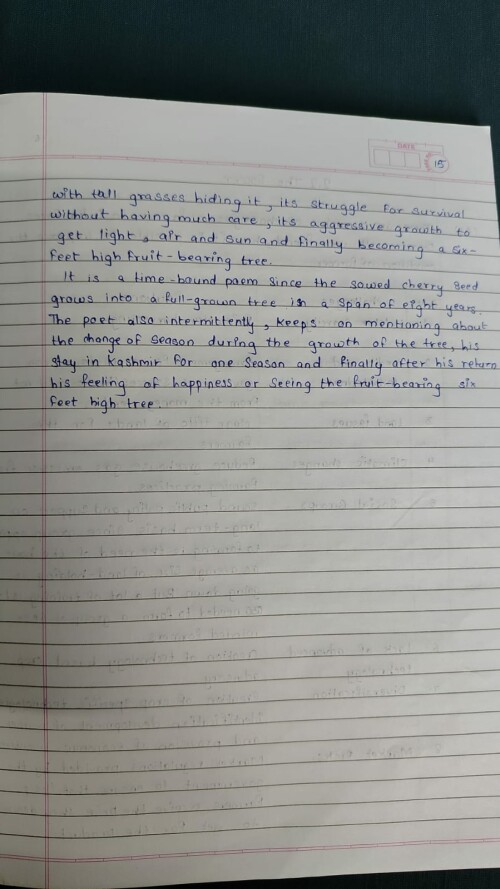 DATE
15
with tall grasses hiding it, its struggle for survival
without having much care, its aggressive growth to
get light, air and sun and finally becoming a six-
feet high fruit-bearing tree.
It is a time-bound poem since the sowed cherry seed
grows into a full-grown tree in a span of eight years.
The poet also intermittently, keeps on mentioning about
the change of season during the growth of the tree, his
stay in Kashmir for one season and finally after his return
his feeling of happiness or seeing the fruit-bearing six
feet high tree.